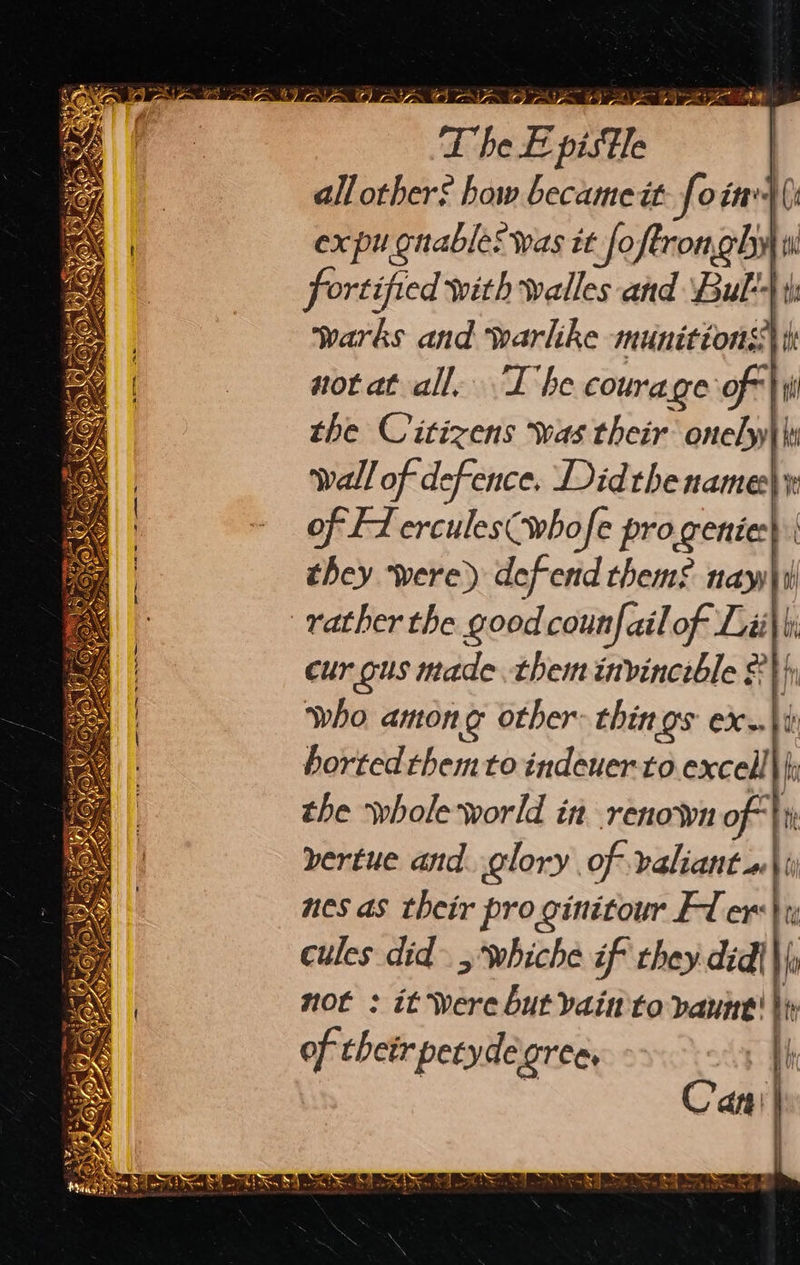 The Epistle
all other? how became it ſo in
expugnable? was it ſo ſtrongly
fortified with walles and Bul
warks and warlike munitions?
not at all. The courage of
the Citizens was their onely
wall of defence. Did the name
of Hercules (whoſe progenie
they were) defend them? nay
rather the good counſail of Lii
curgus made them invincible &
who among other things ex
horted them to indeuer to excell
the whole world in renown of
vertue and glory of valiant
nes as their proginitour Her
cules did , whiche if they did
not : it were but vain to vaunt
of their petydegree.
Can